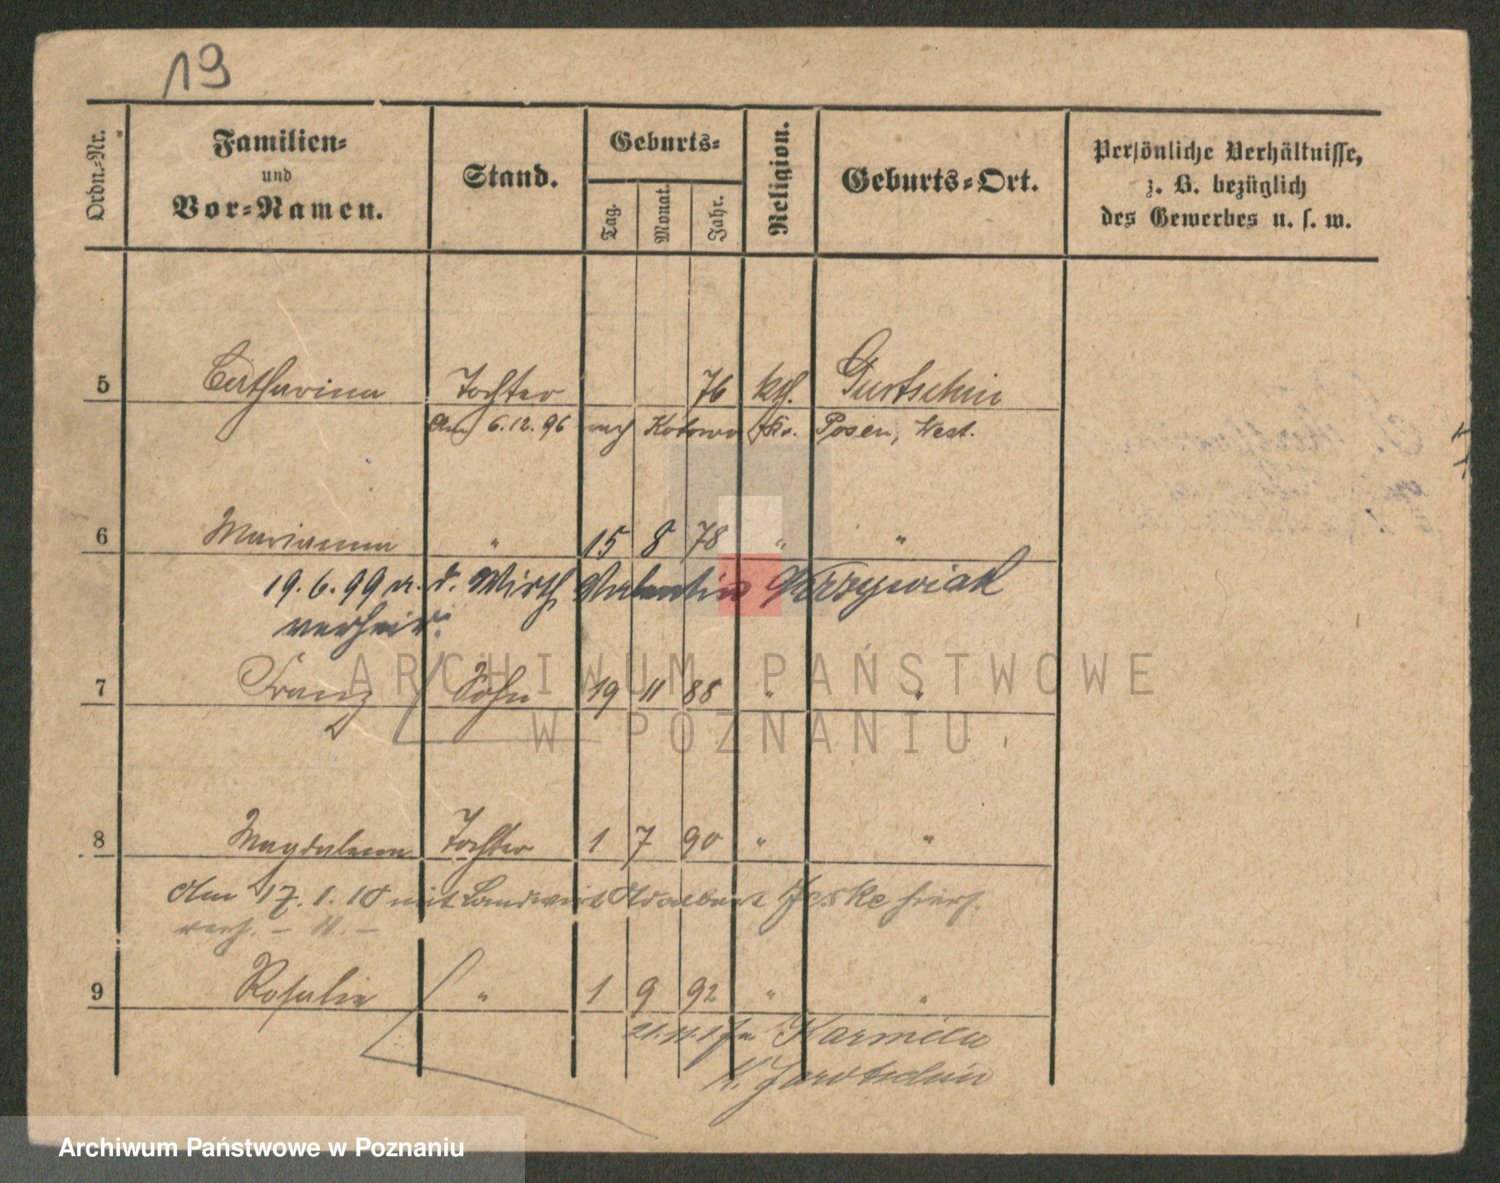 19
Ordn.-Nr.
Familien-
und
Vor-Namen.
Stand.
Geburts-
Tag.
Monat.
Jahr.
Religion.
Geburts-Ort.
Persönliche Verhältnisse,
z. B. bezüglich
des Gewerbes u. s. w.
5 Catharina Tochter 76 kth. Gurtschin
Am 6.12.96 nach Kotowo Kr. Posen, West.
6 Marianna " 15 8 78 " "
19.6.99 a. d. Wirth Valentin
verheir.
7 Franz Sohn 19 11 88 " "
8 Magdalena Tochter 1 7 90 " "
Am 17.1.10 mit Landwirt Adalbert Jeske hiers.
verh.
9 Rosalie " 1 9 92 " "
Karmela
K. Jarotschin
ARCHIWUM PAŃSTWOWE
W POZNANIU
Archiwum Państwowe w Poznaniu